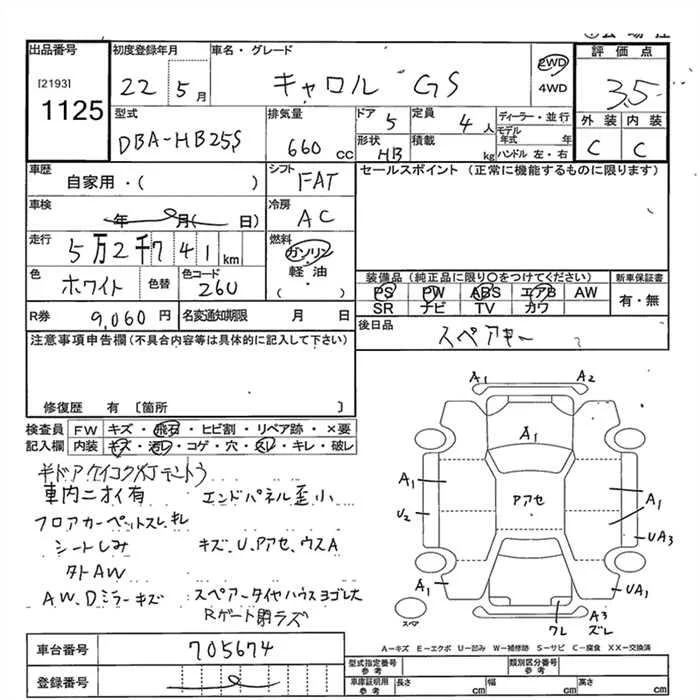 出品番号 初度登録年月 車名・グレード 評価点
[2193] 1125 22 5月 キャロル GS 2WD 4WD 3.5
型式 排気量 ドア 5 定員 4人 ディーラー・並行 外装 内装
DBA-HB25S 660cc 形状 HB 積載 kg モデル年式 年 ハンドル 左・右 C C
車歴 シフト FAT セールスポイント (正常に機能するものに限ります)
自家用・( )
車検 年 月( 日) 冷房 AC
走行 5万2千741km 燃料 ガソリン・軽油 ( )
色 ホワイト 色替 色コード 26U
装備品 (純正品に限り○をつけてください) 新車保証書
PS PW ABS エアB AW 有・無
SR ナビ TV カワ
R券 9,060円 名変通知期限 月 日 後日品 スペアキー
注意事項申告欄(不具合内容等は具体的に記入して下さい)
修復歴 有 〔箇所 〕
検査員 FW キズ・飛石・ヒビ割・リペア跡・×要
記入欄 内装 キズ・汚レ・コゲ・穴・スレ・キレ・破レ
半ドアケイコク灯テントう
車内ニオイ有 エンドパネル歪小
フロアカーペットスレ、キレ
シートしみ キズ、U、Pアセ、ウスA
タトAW
AW、Dミラーキズ スペアータイヤハウスヨゴレ大
Rゲート閉ラズ
A1 A2
A1
A1 Pアセ A1
U2 UA3
A1 UA1
スペア ワレ A3 ズレ
車台番号 705674
A-キズ E-エクボ U-凹み W-補修跡 S-サビ C-腐食 XX-交換済
登録番号
型式指定番号 参考 類別区分番号 参考
車庫証明用 参考 長さ cm 幅 cm 高さ cm